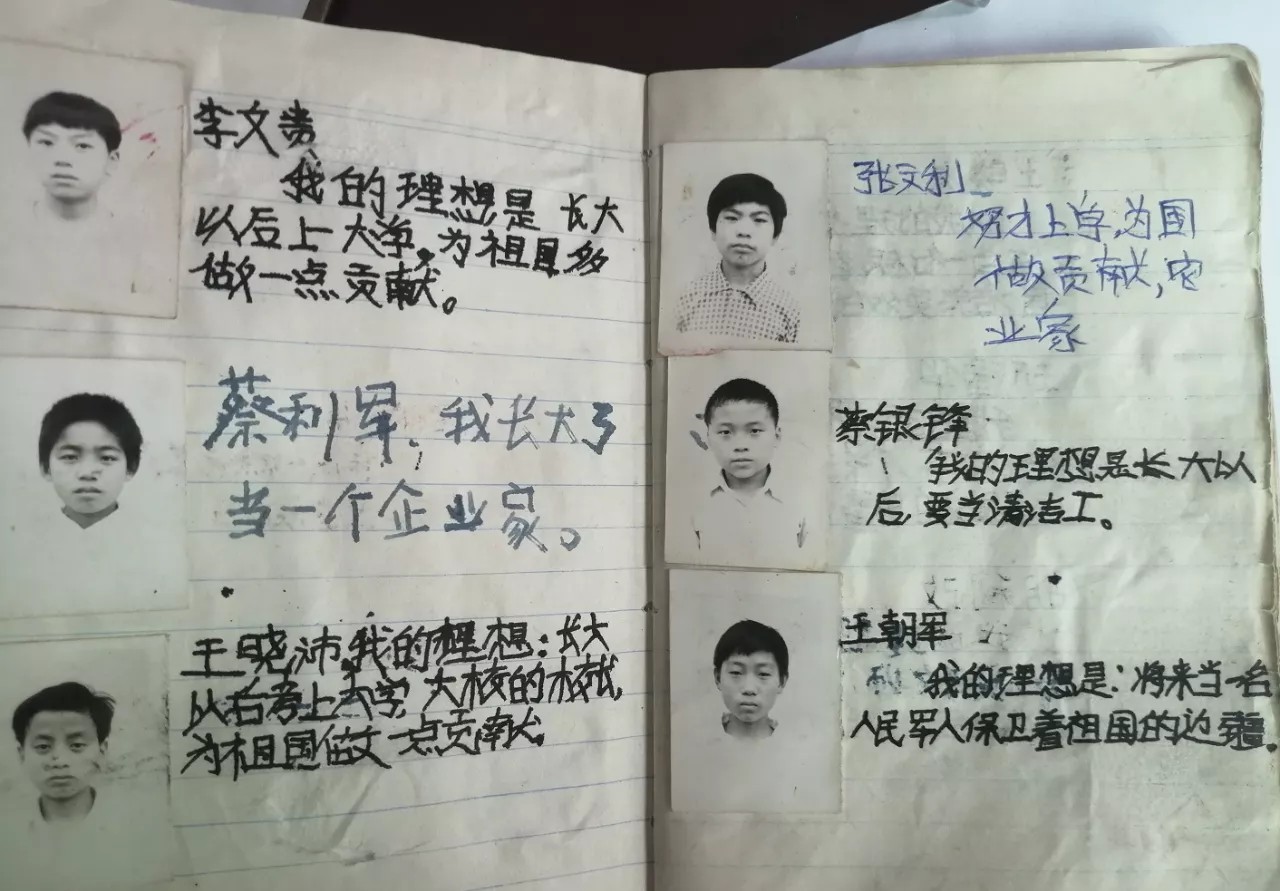 李文贵
我的理想是 长大
以后上大学,为祖国多
做一点贡献。
蔡利军:我长大了
当一个企业家。
王晓沛,我的理想:长大
以后考上大学
为祖国做 一点贡献,
张文利
努才上学,为国
做贡献,农
业家
蔡银锋
我的理想是长大以
后,要当清洁工。
王朝军
我的理想是:将来当一名
人民军人保卫着祖国的边疆.